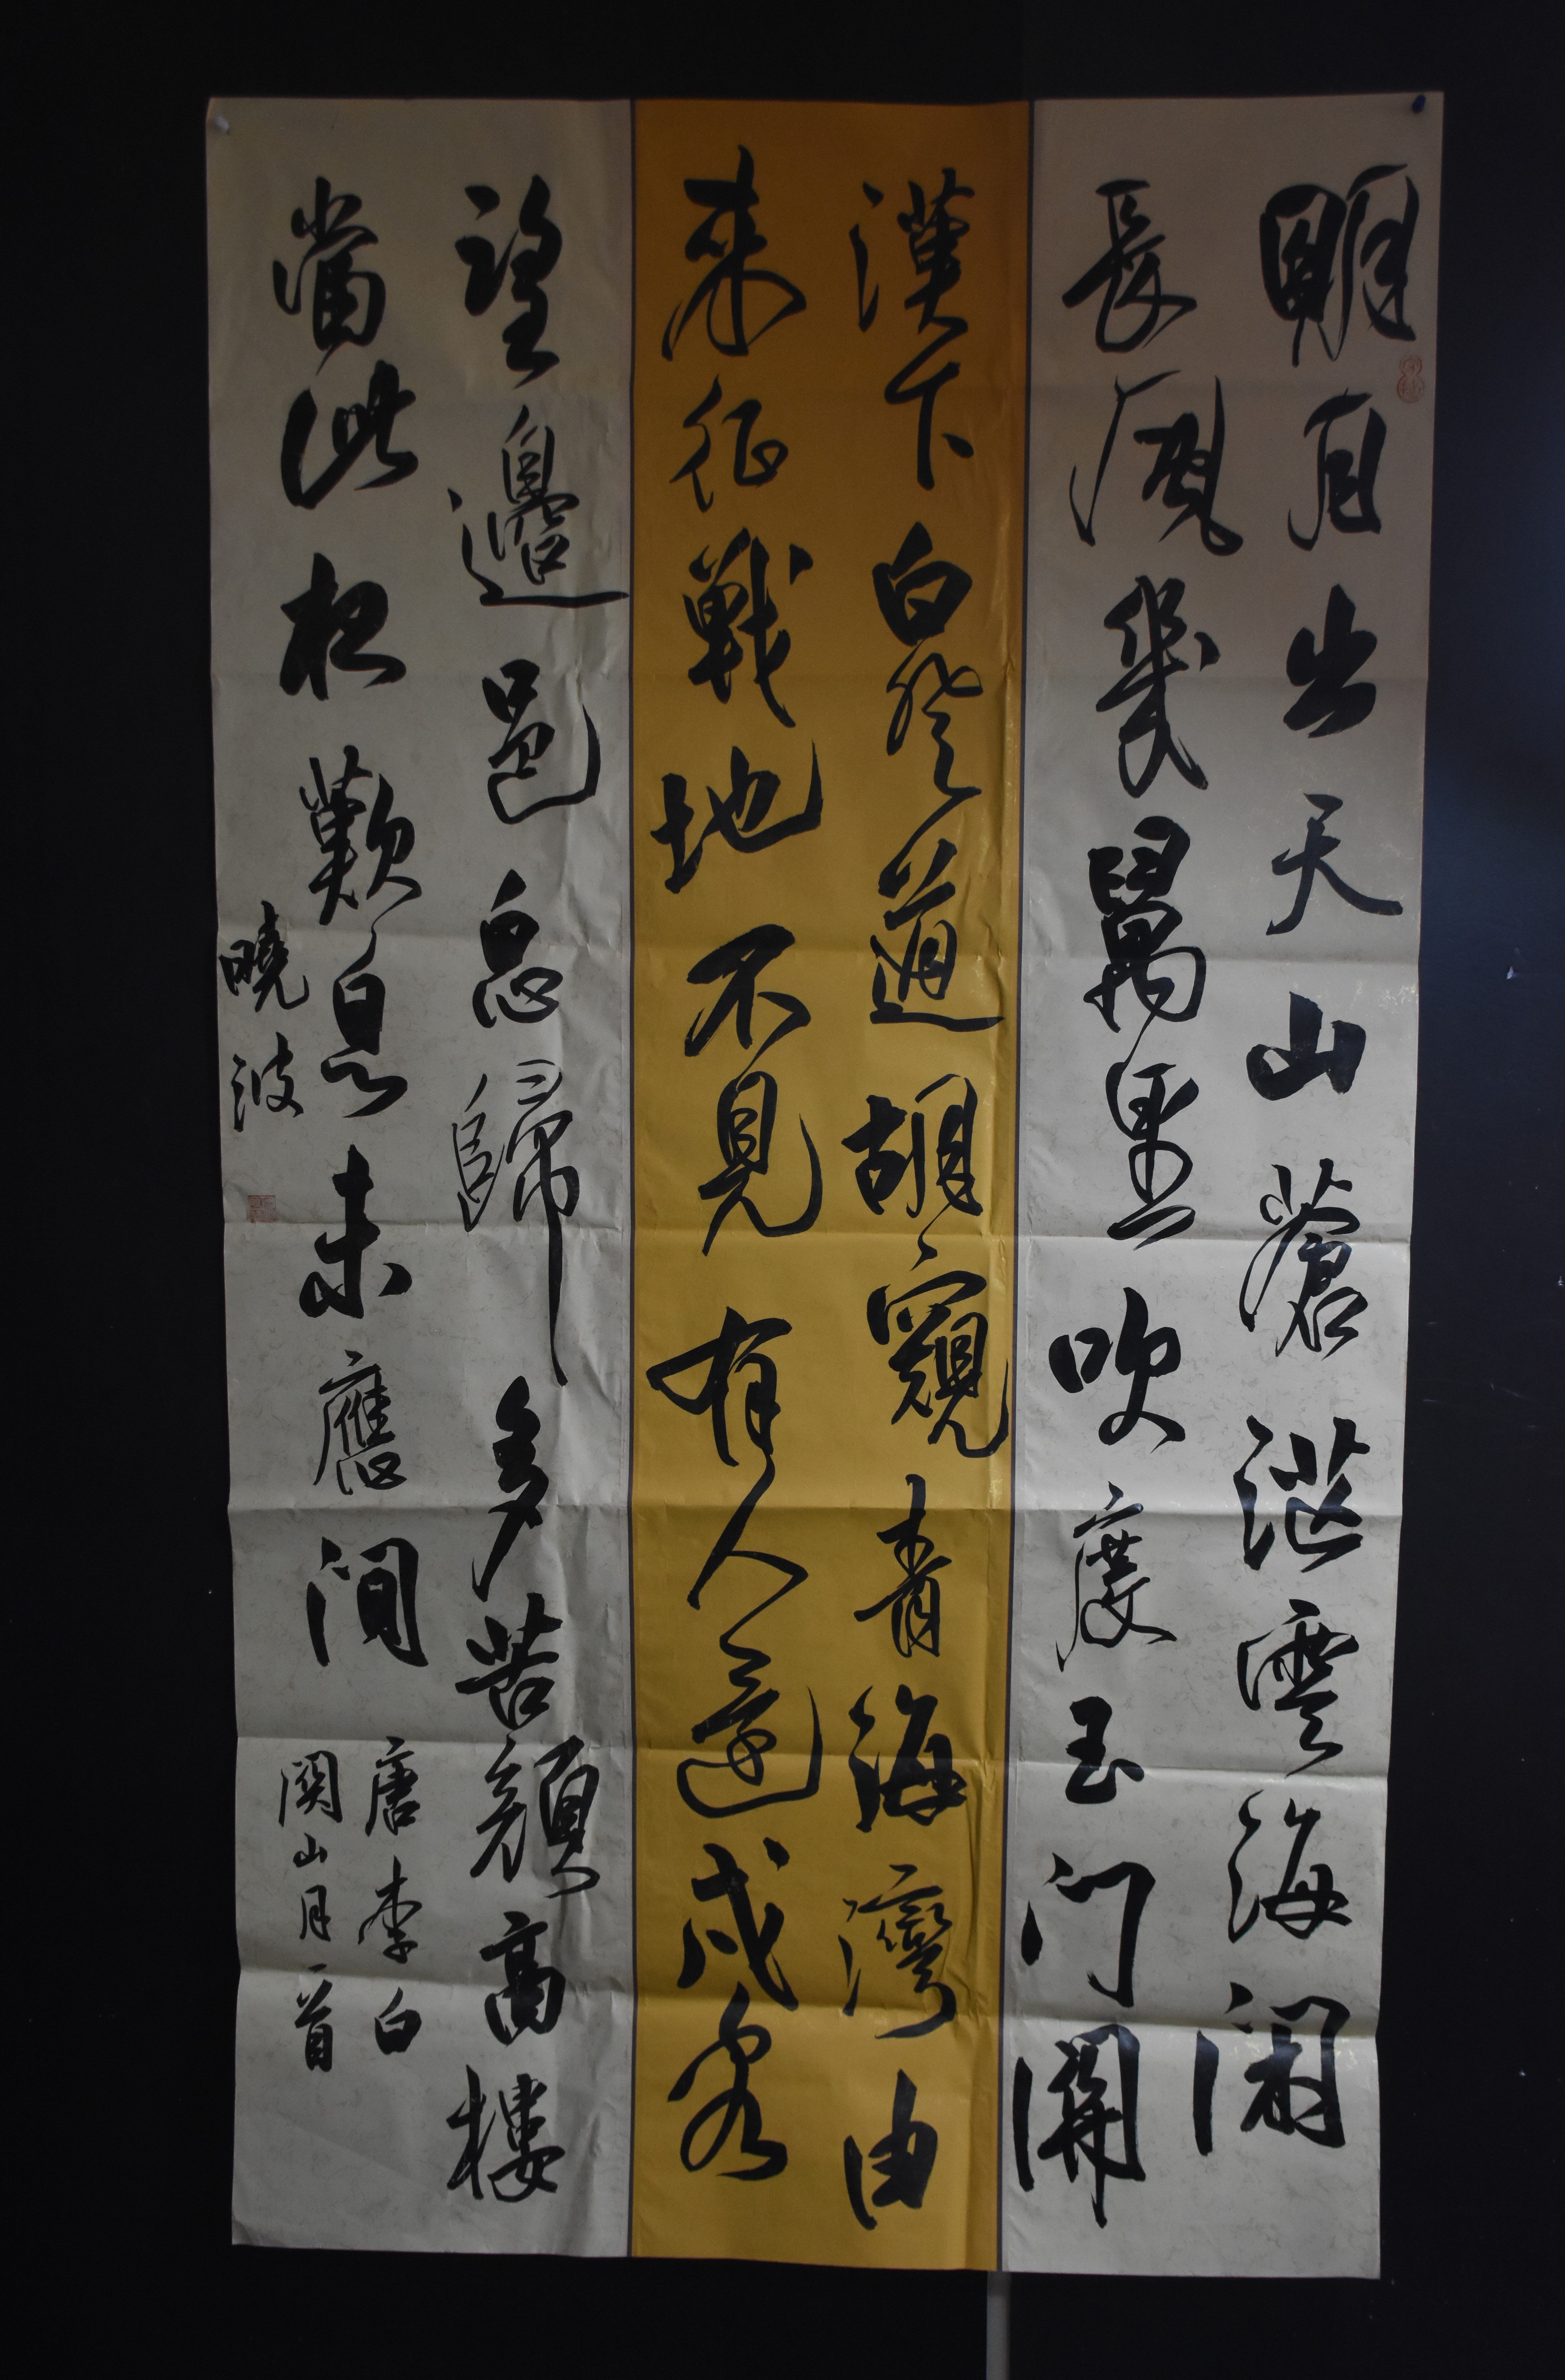 明月出天山蒼茫雲海間
長風幾萬里吹度玉门關
漢下白登道胡窺青海灣由
來征戰地不見有人還戍客
望邊邑思歸多苦顏高樓
當此夜歎息未應間
唐李白
關山月一首
曉波